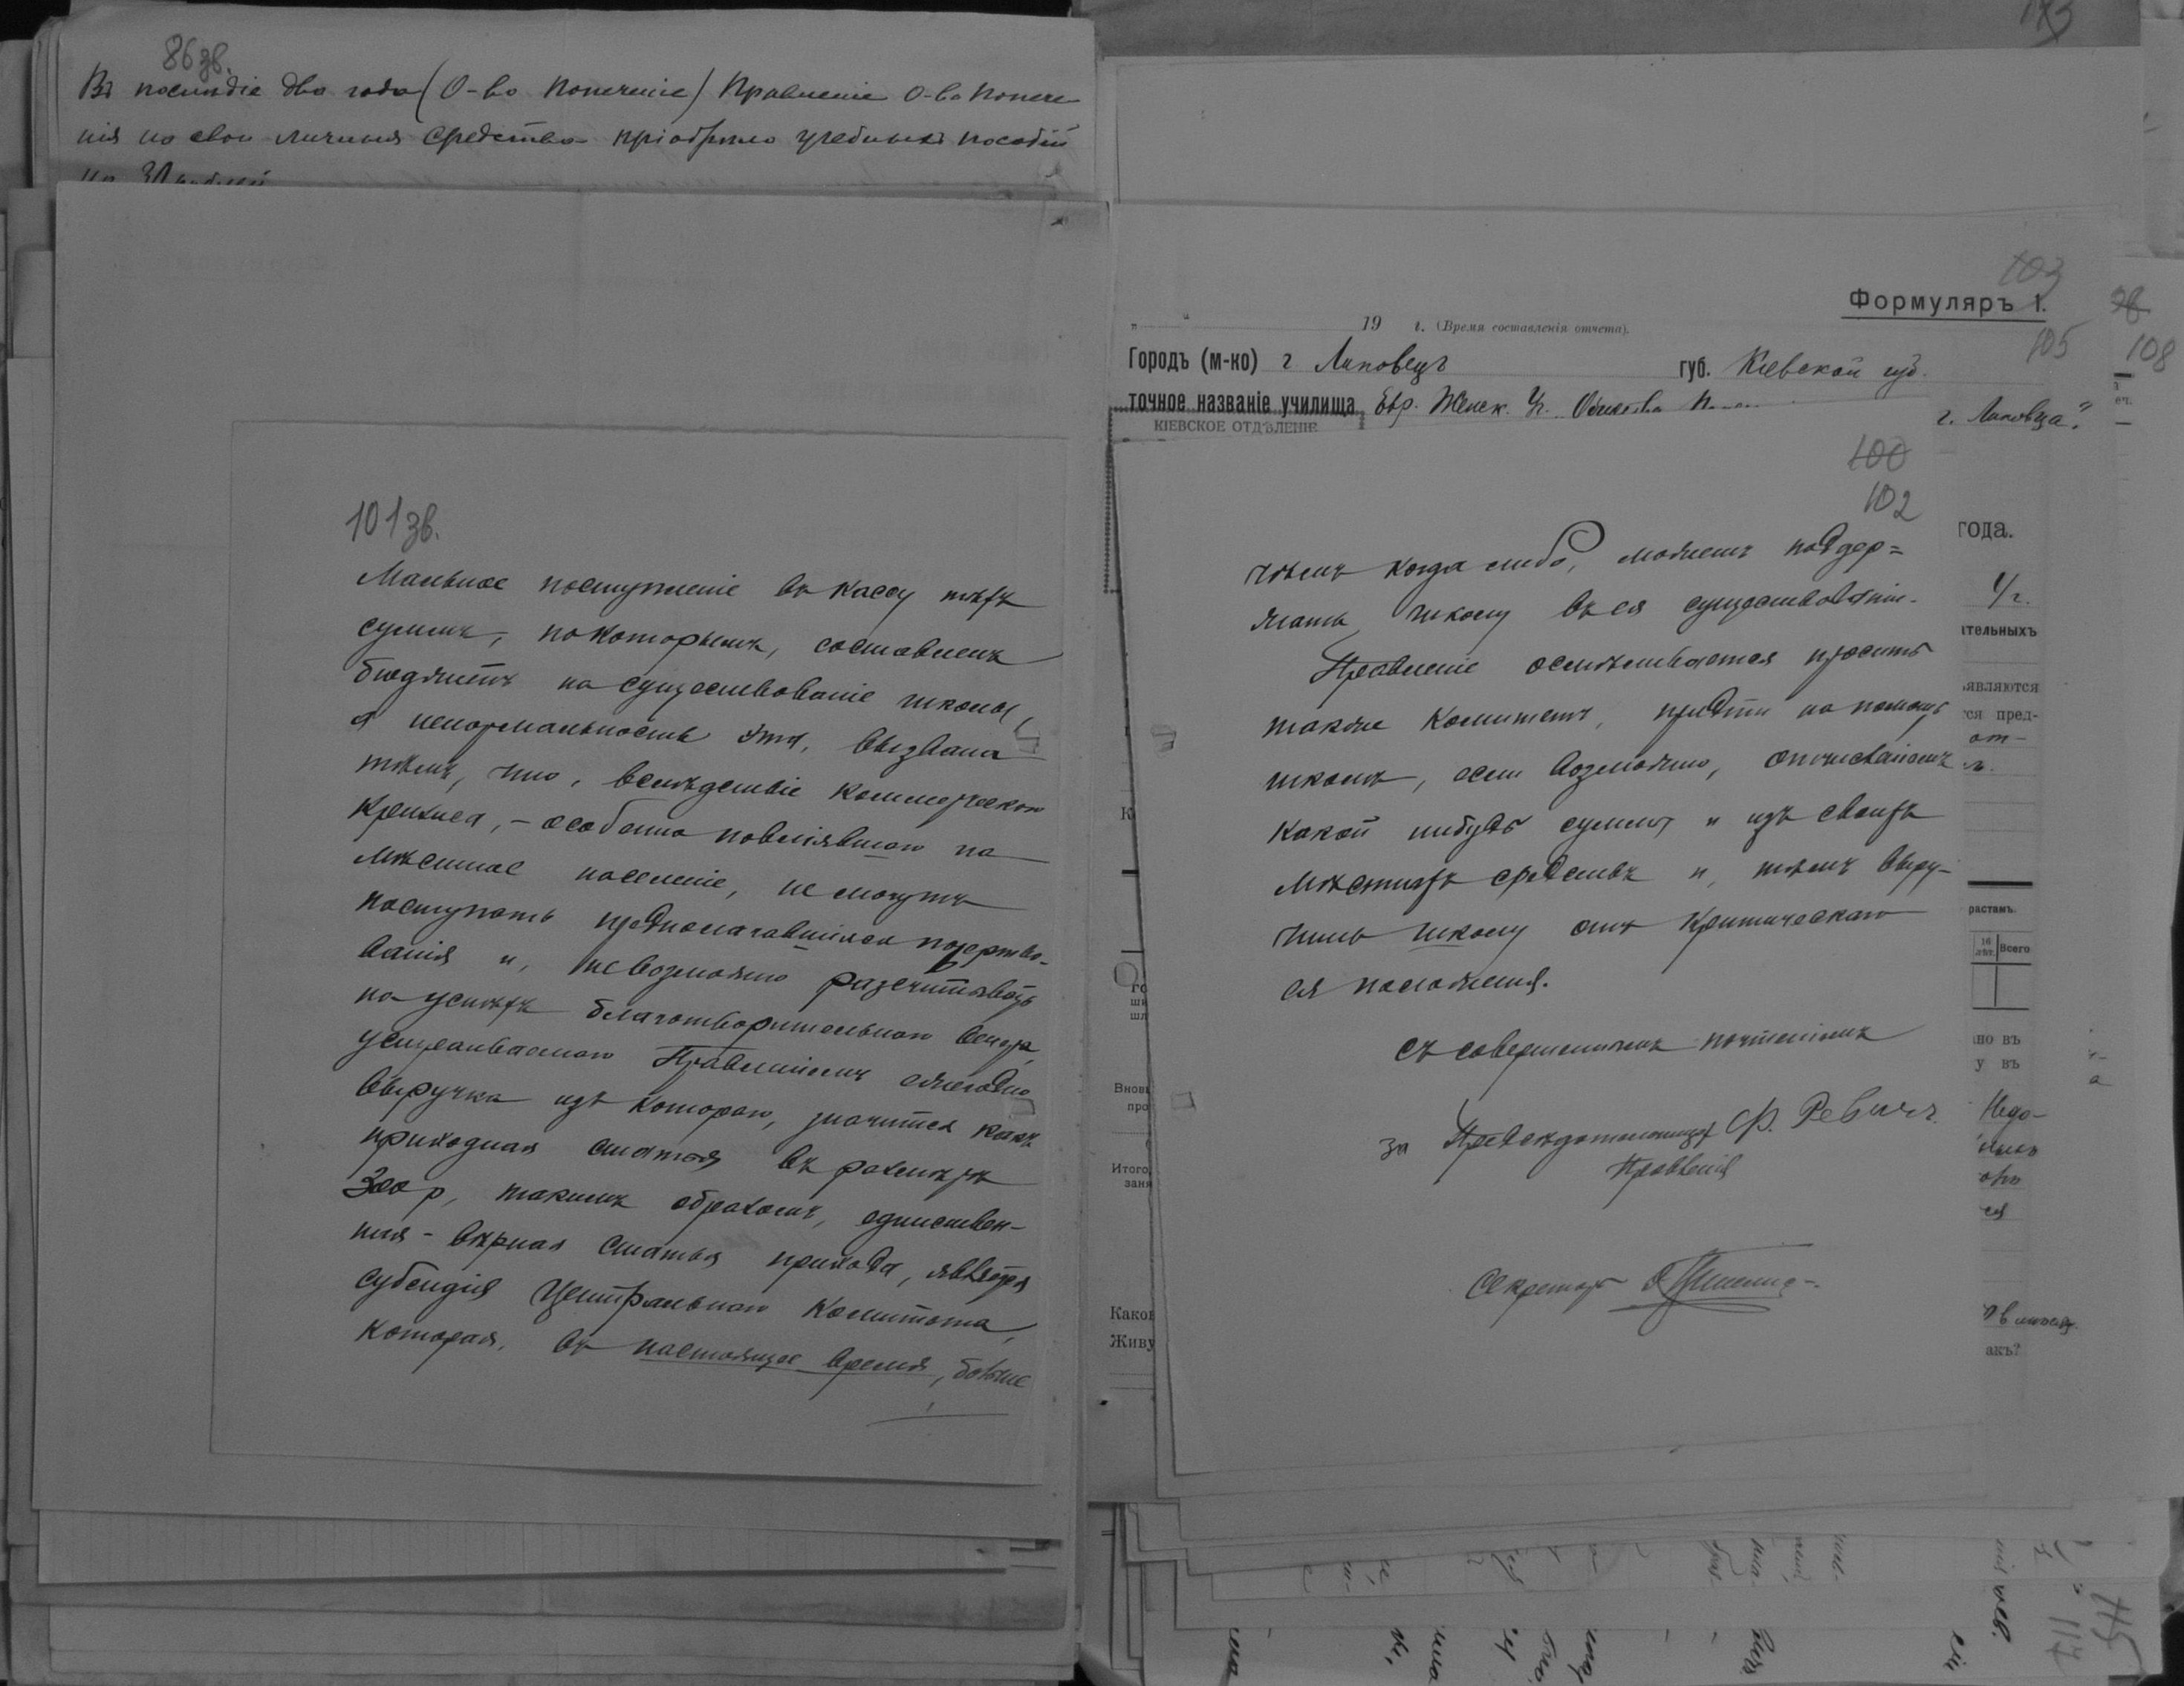 86 зв.
Въ последніе два года (О-во Попеченіе) Правленіе О-ва Попече
нія на свои личныя средства пріобрѣло учебныхъ пособій
на 30 рублей
101 зв.
мальное поступленіе въ кассу тѣхъ
суммъ, по которымъ, составленъ
бюджетъ на существованіе школы,
а ненормальность эта, вызвана
тѣмъ, что, вслѣдствіе коммерческаго
кризиса, – особенно повліявшаго на
мѣстное населеніе, не могутъ
поступать предполагавшіяся пожертво-
ванія и, невозможно разсчитывать
на успѣхъ благотворительнаго вечера,
устраиваемаго Правленіемъ ежегодно,
выручка изъ котораго, значится какъ
приходная статья въ размѣрѣ
300 р, такимъ образомъ, единствен-
ная – вѣрная статья прихода, является
субсидія Центральнаго Комитета,
которая, въ настоящее время, больше
103
Формуляръ I.
" " 19 г. (Время составленія отчета).
105
108
Городъ (м-ко) г Липовецъ губ. Кіевской губ.
точное названіе училища Евр. Женск. Уч. Общества
г. Липовца"
КІЕВСКОЕ ОТДѢЛЕНІЕ
100
102
чѣмъ когда либо, можетъ поддер=
жать школу въ ея существованіи.
Правленіе осмѣливается просить
также Комитетъ, придти на помощь
школѣ, если возможно, отчисленіемъ
какой нибудь суммы и изъ своихъ
мѣстныхъ средствъ и, тѣмъ выру-
чить школу отъ критическаго
ея положенія.
Съ совершеннымъ почтеніемъ
за Предсѣдательницу Ф. Ревичъ
Правленія
Секретарь
года.
1/г.
ательныхъ
являются
ся пред-
от-
растамъ.
16 лѣт. Всего
но въ
у въ
Недо-
акъ?
Вновь
про
Итого
заня
Каков
Живу
115
117